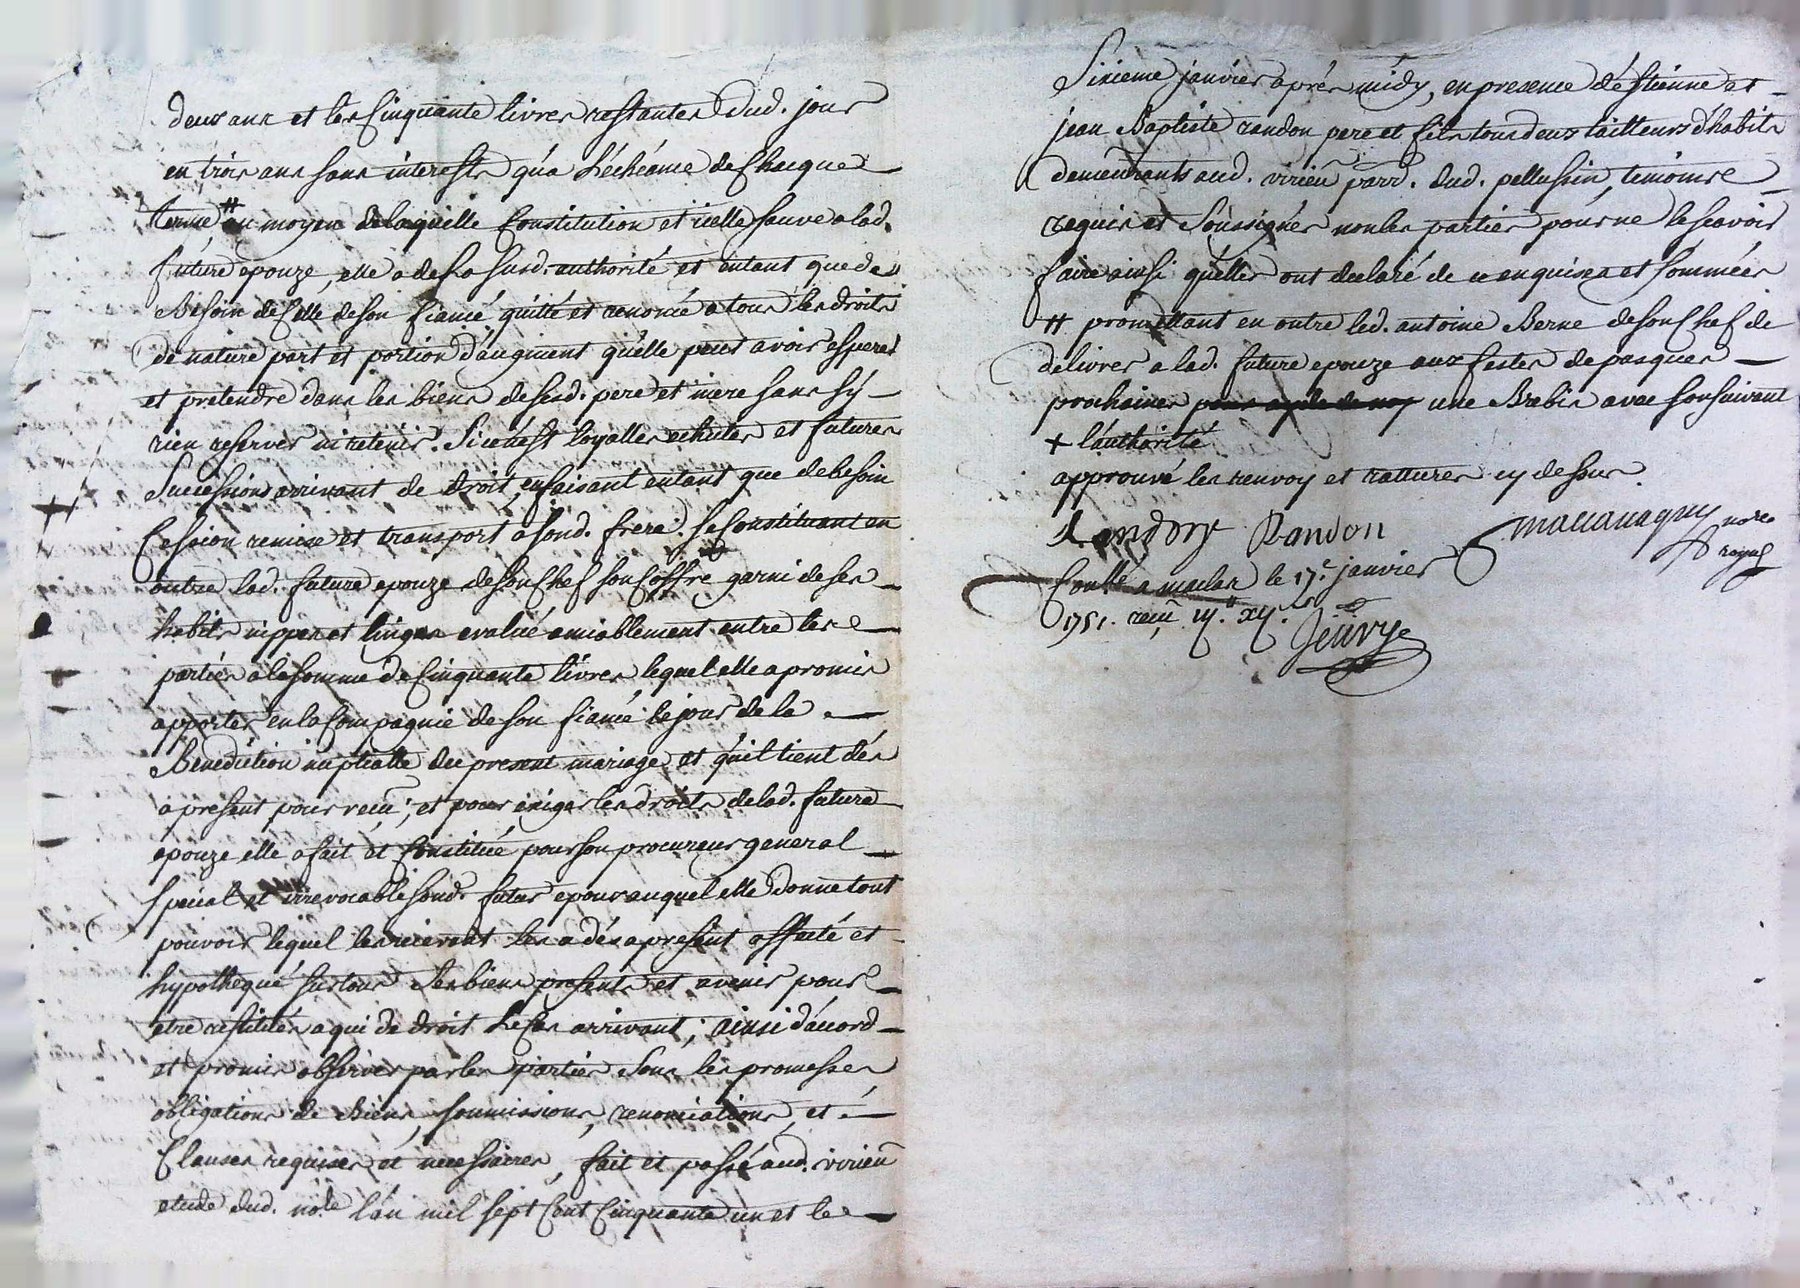 deux ans et les Cinquante livres restantes dud. jour
en trois ans sans interests qu'a L'echéance de Chaque
terme # au moyen de laquelle Constitution et icelle sauve a lad.
future epouze, elle a de sa susd. authorité et entant que de
Besoin de Celle de son fiancé quitté et renoncé a tous les droits
de nature part et portion d'augment qu'elle peut avoir esperer
et pretendre dans les biens de sesd. pere et mere sans s'y
rien reserver ni retenir. Si ce n'est loyalles echutes et futures
Successions arrivant de droit, en faisant entant que de besoin
Cession remise et transport a sond. frere. se Constituant en
outre lad. future epouze de son Chef son Coffre garni de ses
habits nippes et linges evalué amiablement entre les
parties a la somme de Cinquante livres lequel elle a promis
apporter en la Compagnie de son fiancé le jour de la
Benediction nuptialle du present mariage et qu'il tient dés
a present pour recu; et pour exiger les droits de lad. future
epouze elle a fait et Constitué pour son procureur general
special et irrevocable sond. futur epoux auquel elle donne tout
pouvoir lequel les recevant les a dés a present affecté et
hypothequé sur tous Ses biens presents et avenir pour
etre restitués a qui de droit Le Cas arrivant; ainsi d'acord
et promis observer par les parties Sous les promesses
obligations de Biens, soumissions, renonciations, et
Clauses requises et necessaires, fait et passé aud. virieu
etude dud. no.re L'an mil sept Cent Cinquante un et le
Sixieme janvier aprés midy, en presence d'Estienne et
jean Baptiste randon pere et fils tous deux tailleurs d'habits
demeurants aud. virieu parr. dud. pellussin, temoins
requis et Soussignés non les parties pour ne le scavoir
faire ainsi qu'elles ont declaré de ce enquises et sommées
# promettant en outre led. antoine Berne de son Chef de
delivrer a lad. future epouze aux festes de pasques
prochaines une Brebis avec son suivant
+ l'authorité
approuvé les renvoy et ratures cy dessus.
Randon Randon Maccanaguy no.re
royal
Con.lle a maclas le 17.e janvier
1751. recu